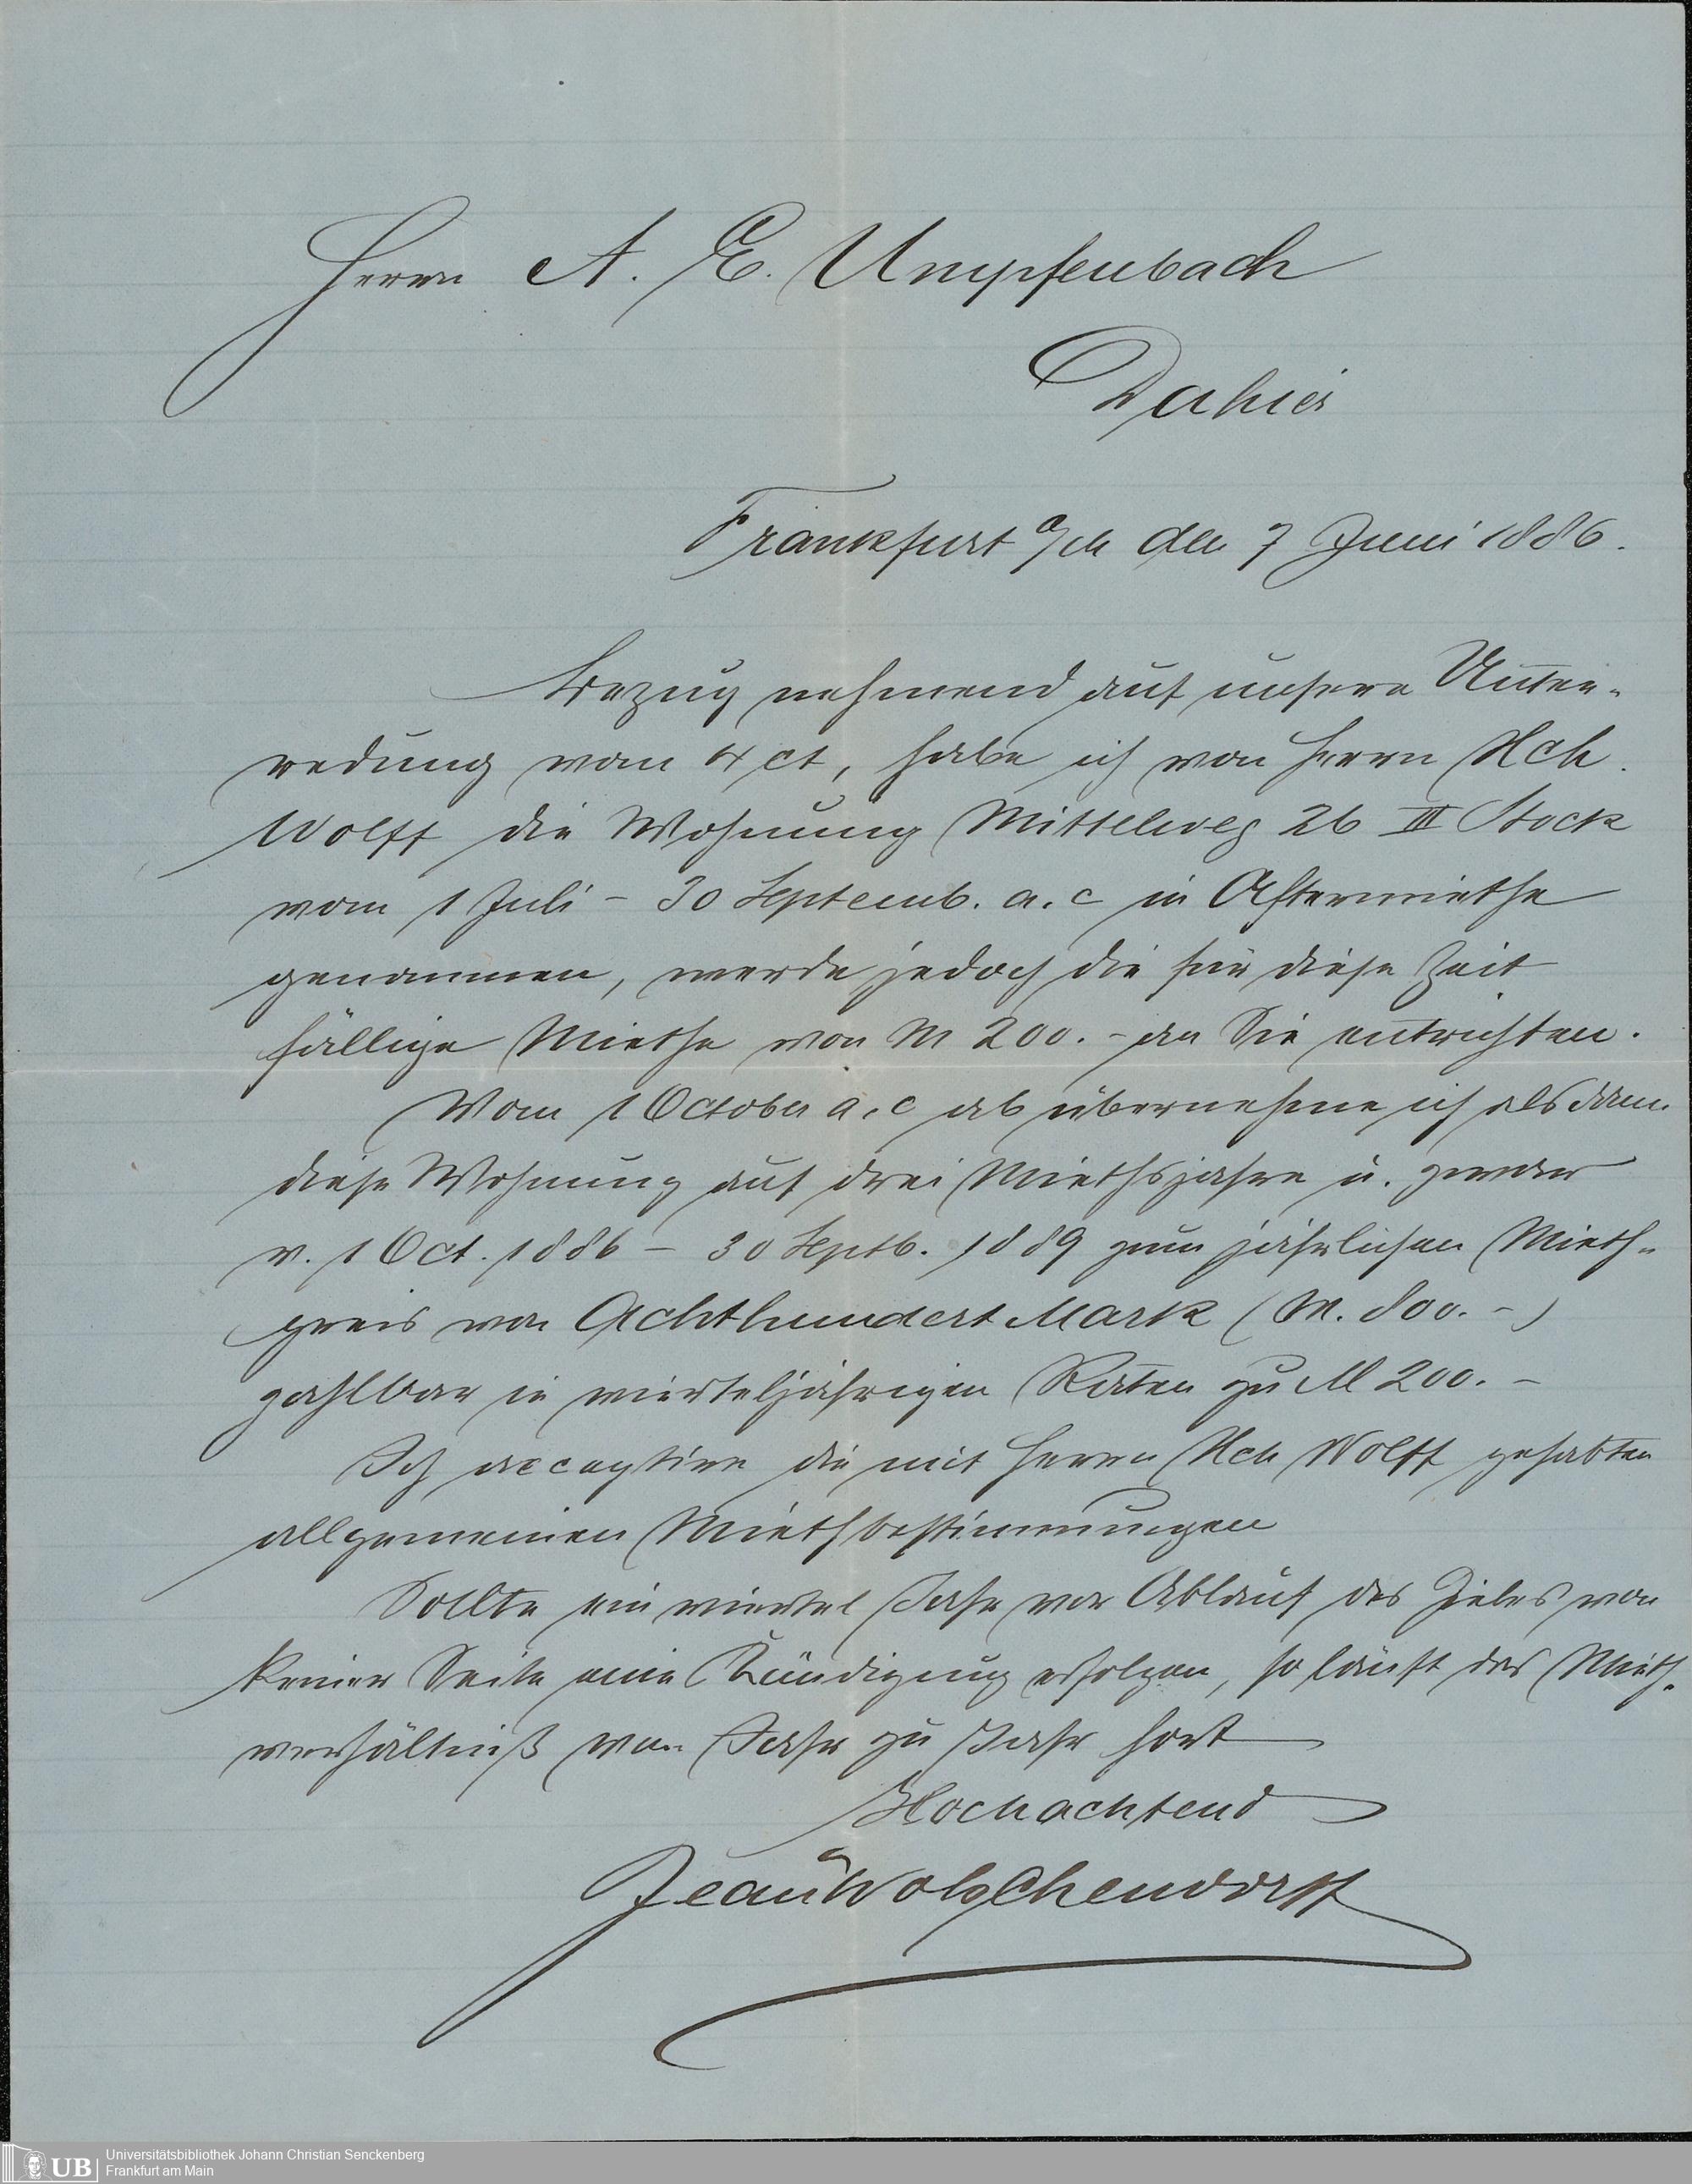 Herrn A. E. Umpfenbach
Dahier
Frankfurt a/M den 7 Juni 1886.
Bezug nehmend auf unsere Unter-
redung vom 4 ct, habe ich von Herrn Hch.
Wolff die Wohnung Mittelweg 26 III Stock
vom 1 Juli - 30 Septemb. a. c in Aftermiethe
genommen, werde jedoch die für diese Zeit
fällige Miethe von M 200. - an Sie entrichten.
Vom 1 October a. c ab übernehme ich alsdann
diese Wohnung auf drei Miethsjahre u. zwar
v. 1 Oct. 1886 - 30 Septb. 1889 zum jährlichen Mieth-
preis von Achthundert Mark (M. 800. -)
zahlbar in vierteljährigen Raten zu M 200. -
Ich acceptire die mit Herrn Hch Wolff gehabten
allgemeinen Miethbestimmungen
Sollte ein viertel Jahr vor Ablauf des Zieles von
keiner Seite eine Kündigung erfolgen, so läuft das Mieth-
verhältniß von Jahr zu Jahr fort
Hochachtend
Jean Wolschendorff
UB
Universitätsbibliothek Johann Christian Senckenberg
Frankfurt am Main